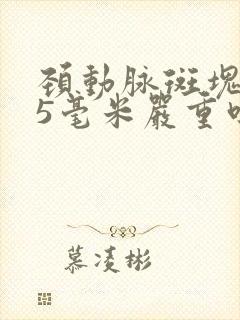 頚動脉斑塊
5毫米嚴重
慕凌彬